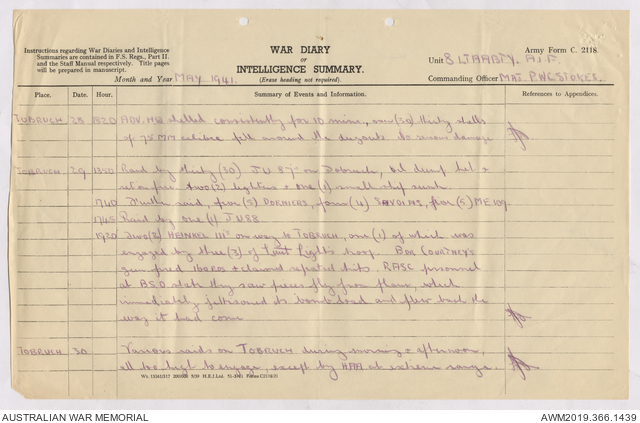 Instructions regarding War Diaries and Intelligence
Summaries are contained in F.S. Regs., Part II.
and the Staff Manual respectively. Title pages
will be prepared in manuscript.
WAR DIARY
OR
INTELLIGENCE SUMMARY.
(Erase heading not required).
Army Form C. 2118.
Unit 8 LT AA BTY. A.I.F.
Commanding Officer MAJ. P.W.G. STOKES.
Month and Year MAY 1941.
Place. Date. Hour. Summary of Events and Information. References to Appendices.
TOBRUCH 28 1520 ADV. HQ shelled consistently for 10 mins, over (30) thirty shells
of 75 MM calibre fell around the dugouts. No serious damage
TOBRUCH 29 Raid by thirty (30) J.U. 87's on Tobruch, oil dump hit &
set on fire. two (2) lighters & one (1) small ship sunk
1740 raid, five (5) DORNIERS, four (4) SAVOIAS, five (5) ME 109.
1745 Raid by one (1) J.U 88.
1920 Two (2) HEINKEL 111's on way to TOBRUCH, one (1) of which was
engaged by three (3) of Lieut Light's troop. BDR COURTNEY'S
gun fired 10 RDS & claimed repeated hits. RASC personnel
at B.S.D state they saw pieces fly from plane, which
immediately jettisoned its bomb load and flew back the
way it had come
TOBRUCH 30 Various raids on TOBRUCH during morning & afternoon,
all too high to engage, except by HAA at extreme range.
AUSTRALIAN WAR MEMORIAL
AWM2019.366.1439